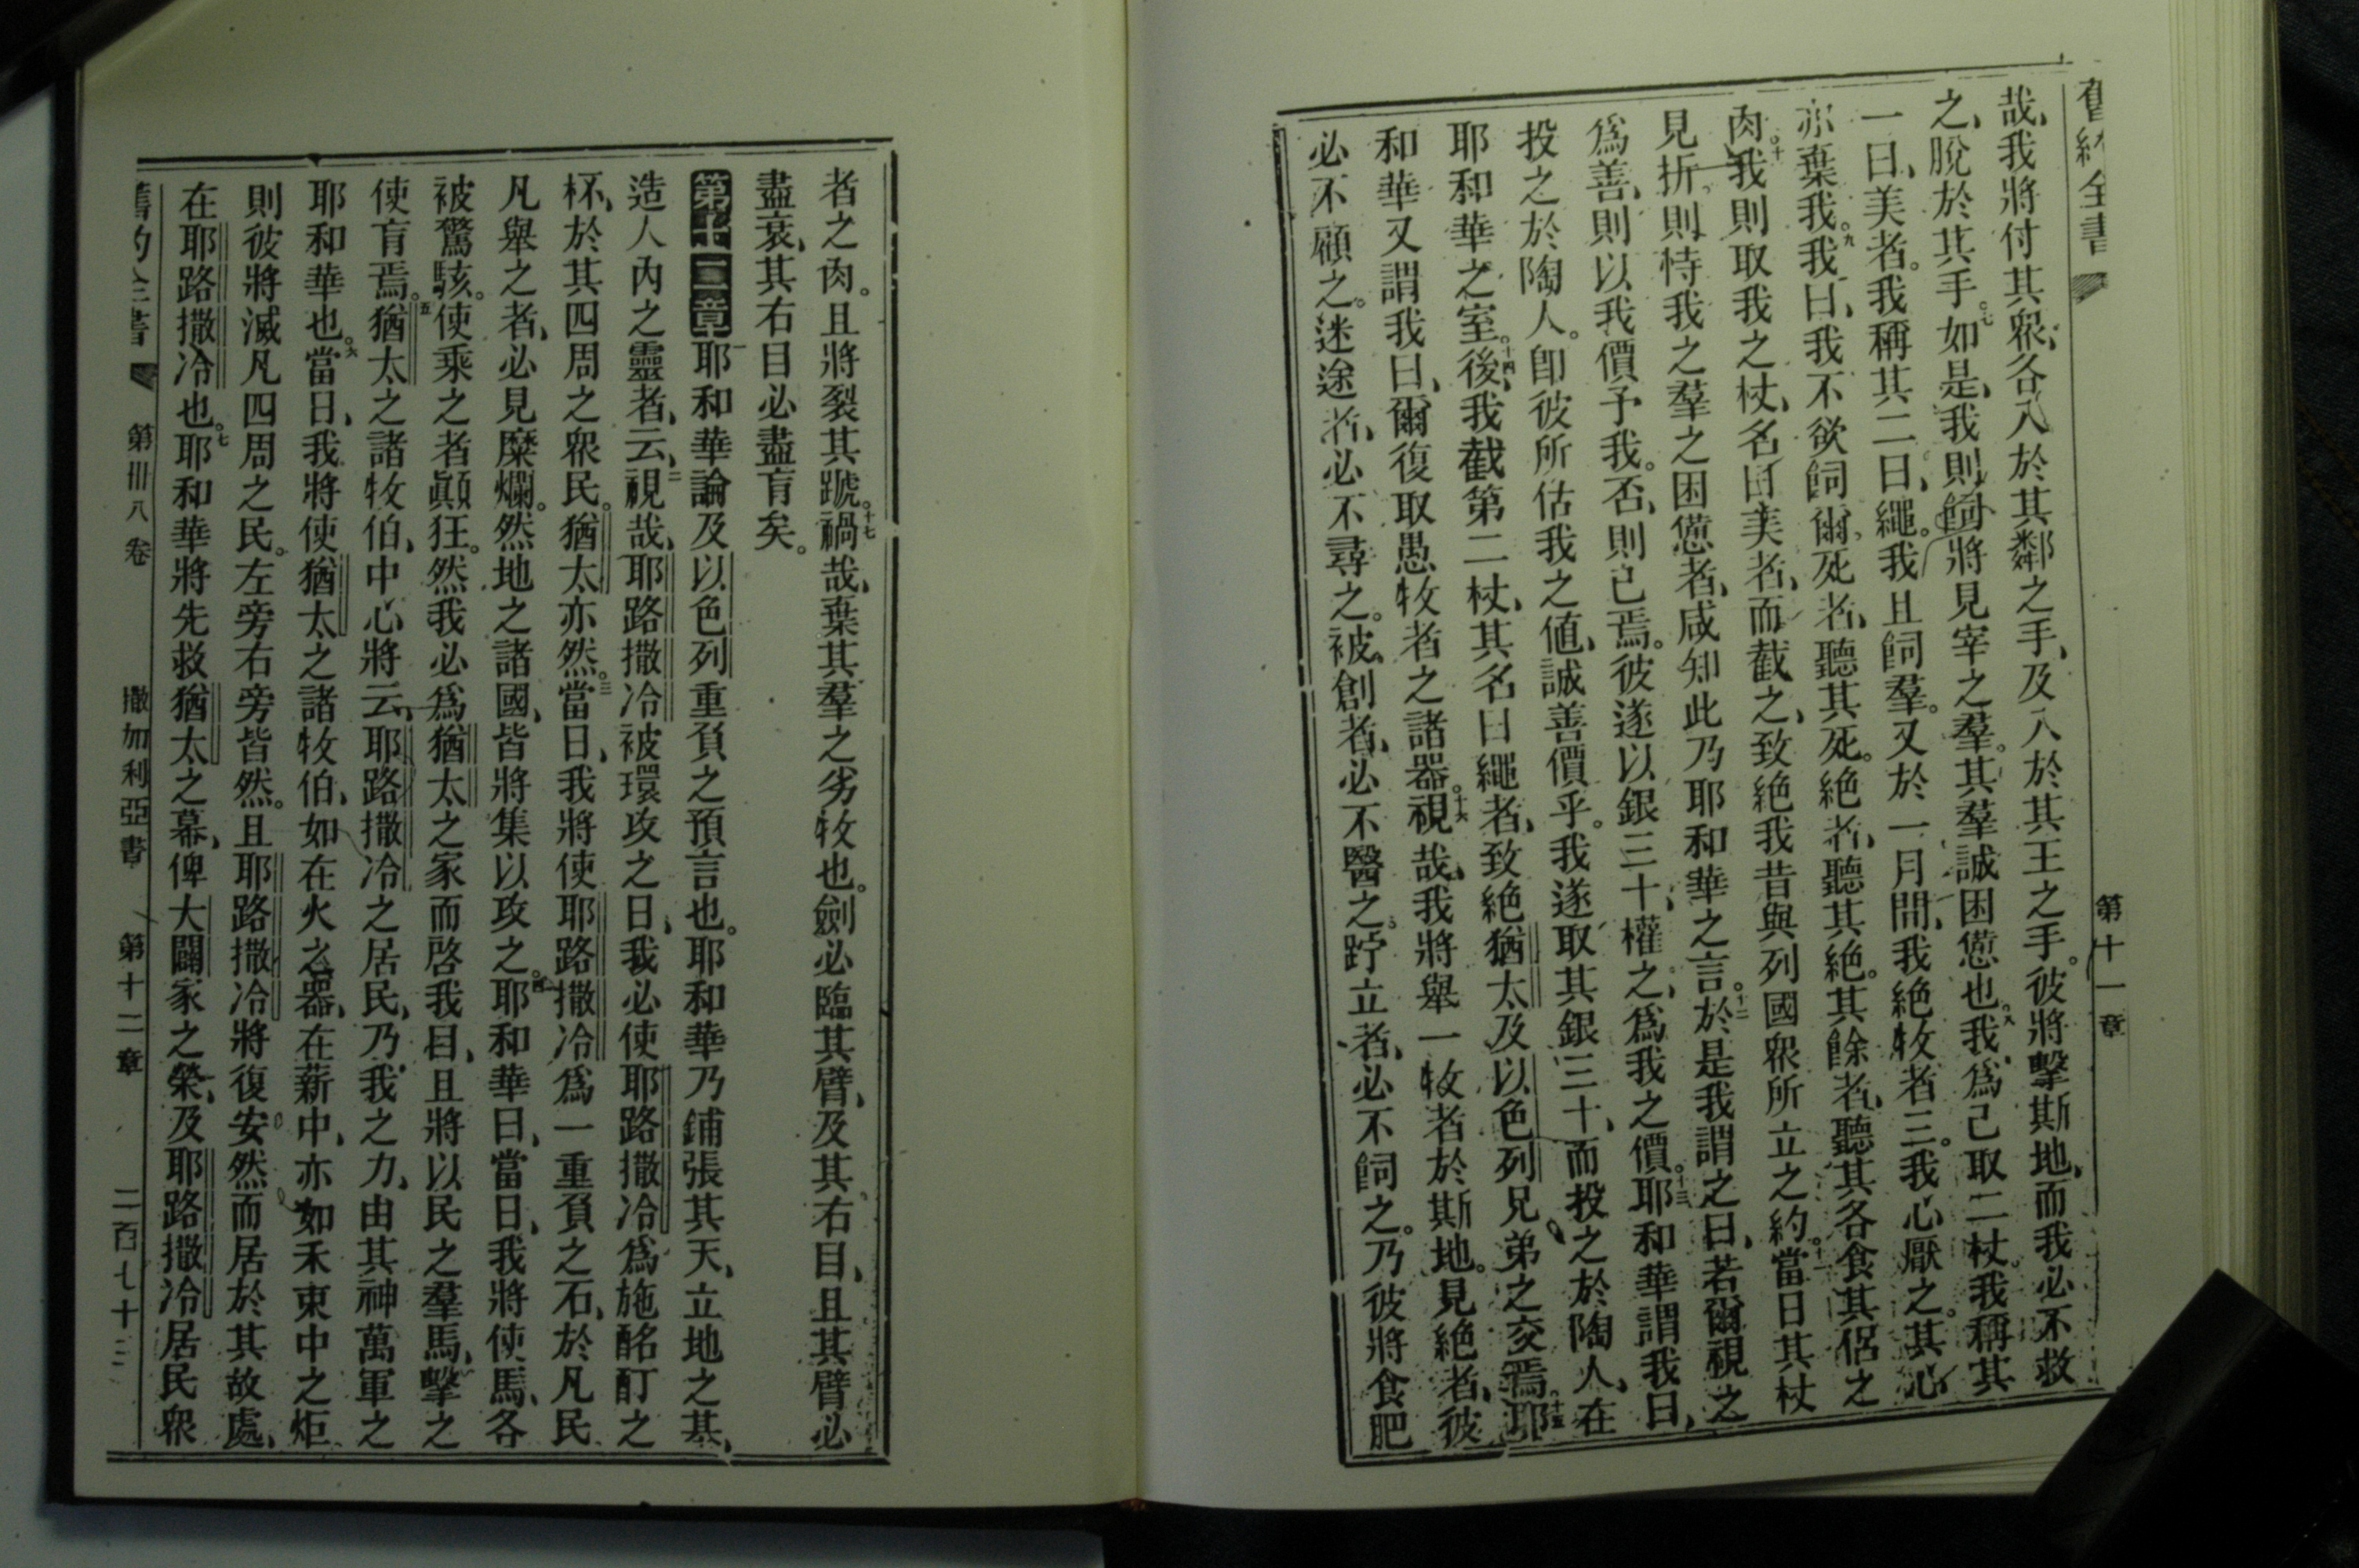 舊約全書
第十一章
哉、我將付其衆、各入於其鄰之手、及入於其王之手。彼將擊斯地、而我必不救
之、脫於其手。七如是、我則飼將見宰之羣。其羣誠困憊也。我爲己取二杖。我稱其
一曰、美者。我稱其二曰、繩。我且飼羣。八又於一月間、我絕牧者三。我心厭之。其心
亦棄我。九我曰、我不欲飼爾、死者、聽其死。絕者、聽其絕。其餘者、聽其各食其侶之
肉。十我則取我之杖、名曰美者、而截之、致絕我昔與列國衆所立之約。十一當日其杖
見折。則恃我之羣之困憊者、咸知此乃耶和華之言。十二於是我謂之曰、若爾視之
爲善、則以我價予我。否、則已焉。彼遂以銀三十、權之、爲我之價。十三耶和華謂我曰、
投之於陶人。卽彼所估我之値、誠善價乎。我遂取其銀三十、而投之於陶人、在
耶和華之室。十四後、我截第二杖、其名曰繩者、致絕猶太及以色列兄弟之交焉。十五耶
和華又謂我曰、爾復取愚牧者之諸器。十六視哉、我將舉一牧者於斯地。見絕者、彼
必不顧之。迷途者、必不尋之。被創者、必不醫之。跱立者、必不飼之。乃彼將食肥
者之肉。且將裂其蹏。十七禍哉、棄其羣之劣牧也。劍必臨其臂、及其右目、且其臂必
盡衰、其右目必盡盲矣。
第十二章一耶和華論及以色列重負之預言也。耶和華乃鋪張其天、立地之基、
造人內之靈者、云、二視哉、耶路撒冷被環攻之日、我必使耶路撒冷爲施酩酊之
杯、於其四周之衆民。猶太亦然。三當日、我將使耶路撒冷爲一重負之石、於凡民
凡舉之者、必見糜爛。然地之諸國、皆將集以攻之。四耶和華曰、當日、我將使馬、各
被驚駭。使乘之者顚狂。然我必爲猶太之家而啓我目、且將以民之羣馬、擊之
使盲焉。五猶太之諸牧伯、中心將云、耶路撒冷之居民、乃我之力、由其神萬軍之
耶和華也。六當日、我將使猶太之諸牧伯、如在火之器、在薪中、亦如禾束中之炬
則彼將滅凡四周之民。左旁右旁皆然。且耶路撒冷將復安然而居於其故處、
在耶路撒冷也。七耶和華將先救猶太之幕、俾大闢家之榮、及耶路撒冷居民衆
舊約全書
第卅八卷
撒加利亞書
第十二章
二百七十三